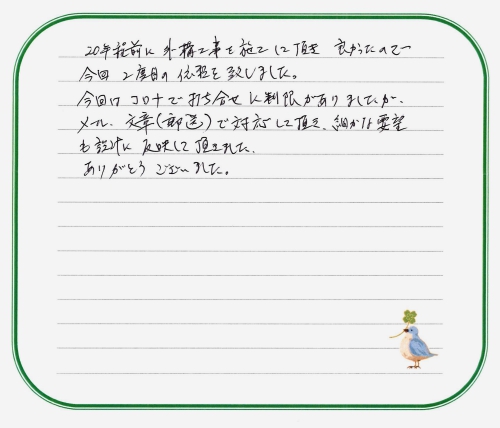 20年程前に外構工事を施工して頂き 良かったので
今回 2度目の依頼を致しました。
今回は コロナで打ち合せに制限がありましたが、
メール、文章(郵送)で対応して頂き、細かな要望
も設計に反映して頂きました、
ありがとうございました。